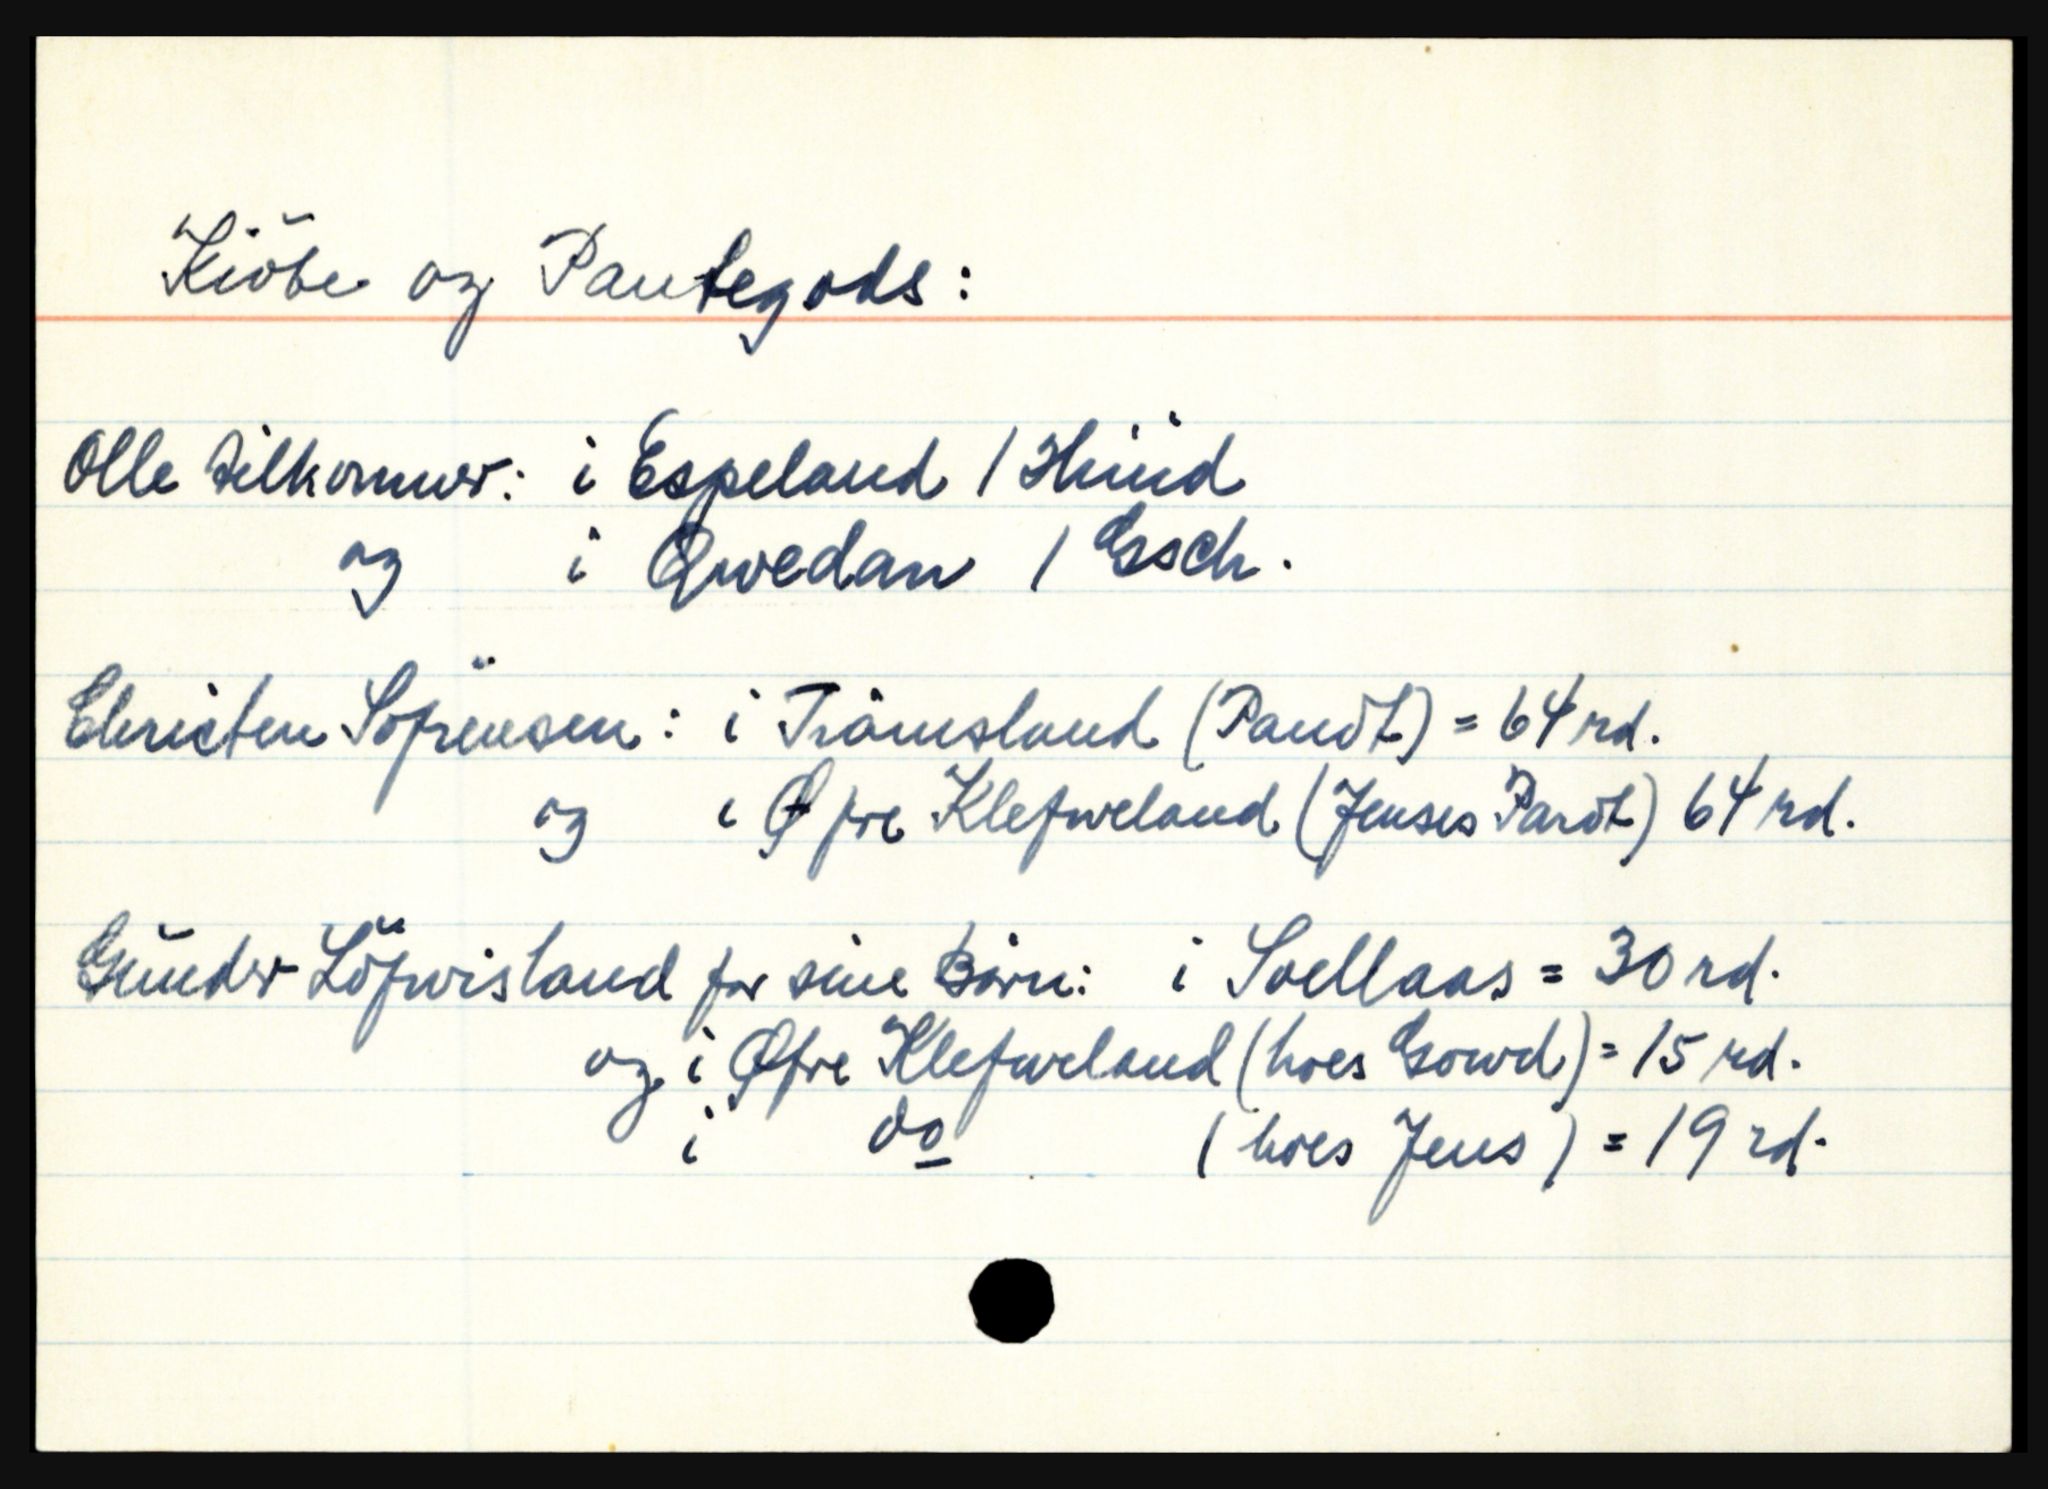 Kiöbe og Pantegods:
Olle tilkommer: i Espeland 1 Hüüd
og i Qwedan 1 Gsch.
Christen Söfrensen: i Tråmsland (Pandt) = 64 rd.
og i Øfre Klefweland (Jenses Pardt) 64 rd.
Gunder Löfwisland for sine Börn: i Soellaas = 30 rd.
og i Øfre Klefweland (hoes Gowd) = 15 rd.
i do (hoes Jens) = 19 rd.